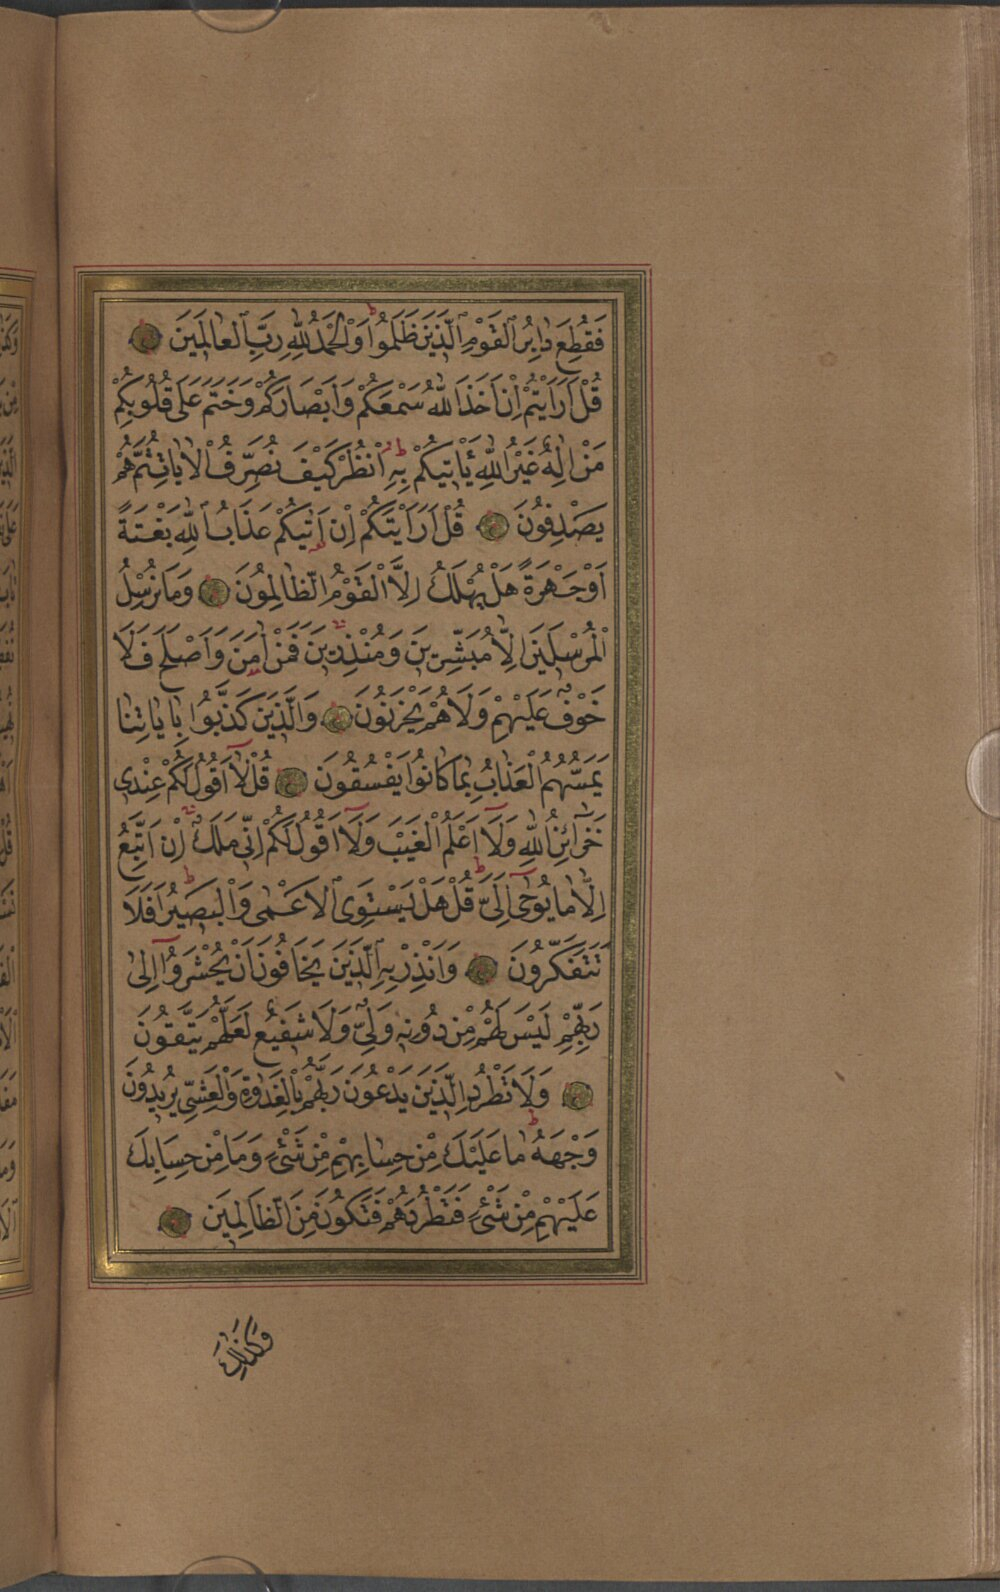 فَقُطِعَ دَابِرُ الْقَوْمِ الَّذِينَ ظَلَمُوا وَالْحَمْدُ لِلَّهِ رَبِّ الْعَالَمِينَ
قُلْ اَرَاَيْتُمْ اِنْ اَخَذَ اللَّهُ سَمْعَكُمْ وَاَبْصَارَكُمْ وَخَتَمَ عَلَى قُلُوبِكُمْ
مَنْ اِلَهٌ غَيْرُ اللَّهِ يَأْتِيكُمْ بِهِ اُنْظُرْ كَيْفَ نُصَرِّفُ الْاٰيَاتِ ثُمَّ هُمْ
يَصْدِفُونَ قُلْ اَرَاَيْتَكُمْ اِنْ اَتٰيكُمْ عَذَابُ اللَّهِ بَغْتَةً
اَوْ جَهْرَةً هَلْ يُهْلَكُ اِلَّا الْقَوْمُ الظَّالِمُونَ وَمَا نُرْسِلُ
الْمُرْسَلِينَ اِلَّا مُبَشِّرِينَ وَمُنْذِرِينَ فَمَنْ اٰمَنَ وَاَصْلَحَ فَلَا
خَوْفٌ عَلَيْهِمْ وَلَا هُمْ يَحْزَنُونَ وَالَّذِينَ كَذَّبُوا بِاٰيَاتِنَا
يَمَسُّهُمُ الْعَذَابُ بِمَا كَانُوا يَفْسُقُونَ قُلْ لَا اَقُولُ لَكُمْ عِنْدِى
خَزَائِنُ اللَّهِ وَلَا اَعْلَمُ الْغَيْبَ وَلَا اَقُولُ لَكُمْ اِنِّى مَلَكٌ اِنْ اَتَّبِعُ
اِلَّا مَا يُوحَى اِلَىَّ قُلْ هَلْ يَسْتَوِى الْاَعْمَى وَالْبَصِيرُ اَفَلَا
تَتَفَكَّرُونَ وَاَنْذِرْ بِهِ الَّذِينَ يَخَافُونَ اَنْ يُحْشَرُوا اِلَى
رَبِّهِمْ لَيْسَ لَهُمْ مِنْ دُونِهِ وَلِىٌّ وَلَا شَفِيعٌ لَعَلَّهُمْ يَتَّقُونَ
وَلَا تَطْرُدِ الَّذِينَ يَدْعُونَ رَبَّهُمْ بِالْغَدٰوةِ وَالْعَشِىِّ يُرِيدُونَ
وَجْهَهُ مَا عَلَيْكَ مِنْ حِسَابِهِمْ مِنْ شَىْءٍ وَمَا مِنْ حِسَابِكَ
عَلَيْهِمْ مِنْ شَىْءٍ فَتَطْرُدَهُمْ فَتَكُونَ مِنَ الظَّالِمِينَ
وَكَذَلِكَ